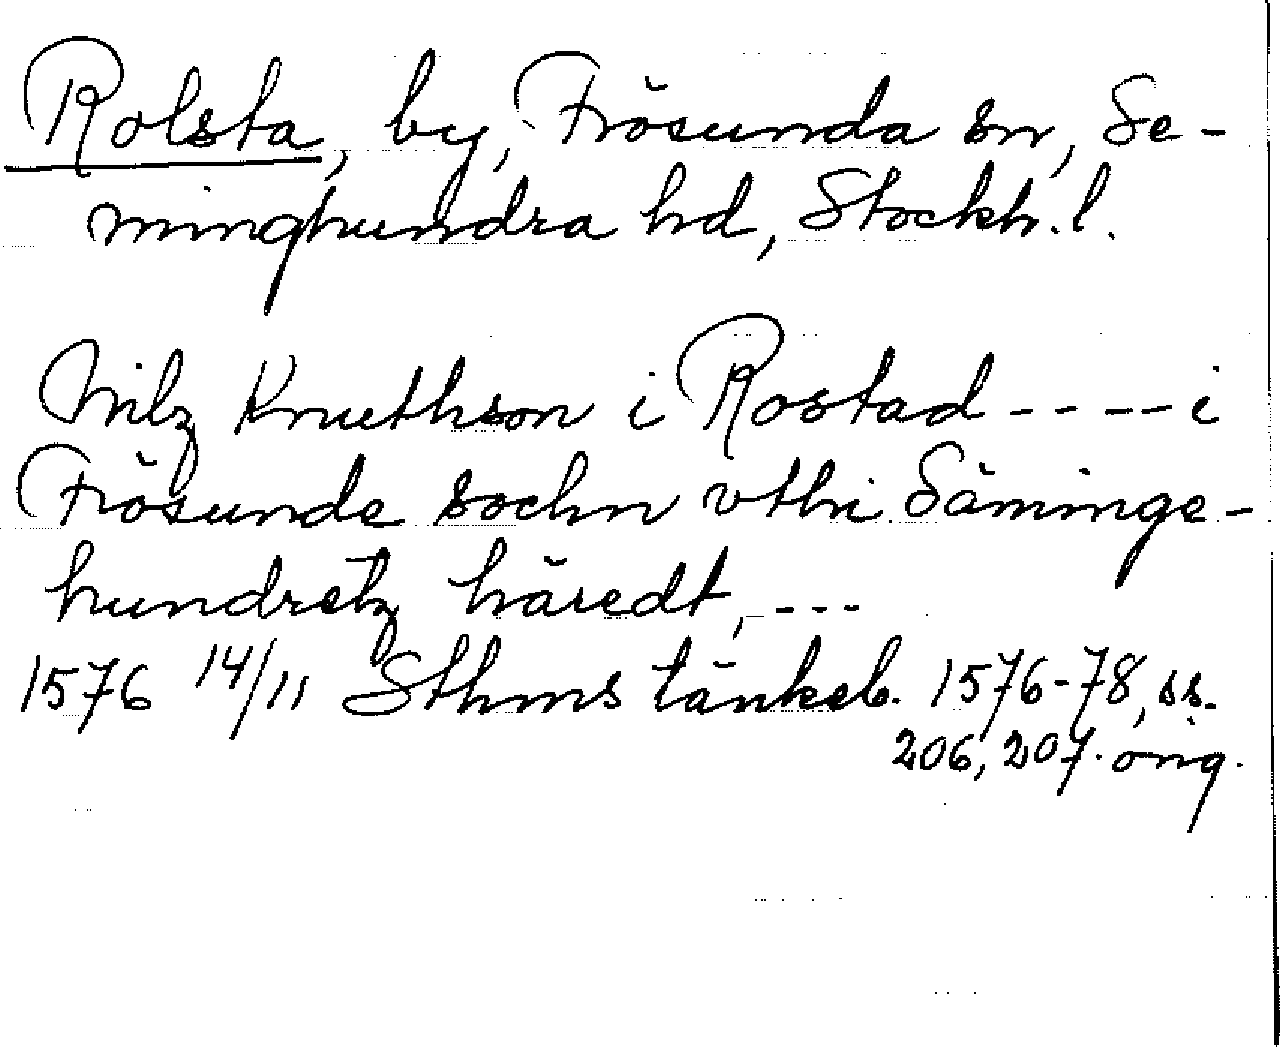 Rolsta, by, Frösunda sn, Se-
minghundra hd, Stockh. l.
Nilz Knuthson i Rostad ---- i
Frösunde sochn vthi Säminge-
hundretz häredt, ---
1576 14/11 Sthms tänkeb. 1576-78, ss.
206, 207. orig.